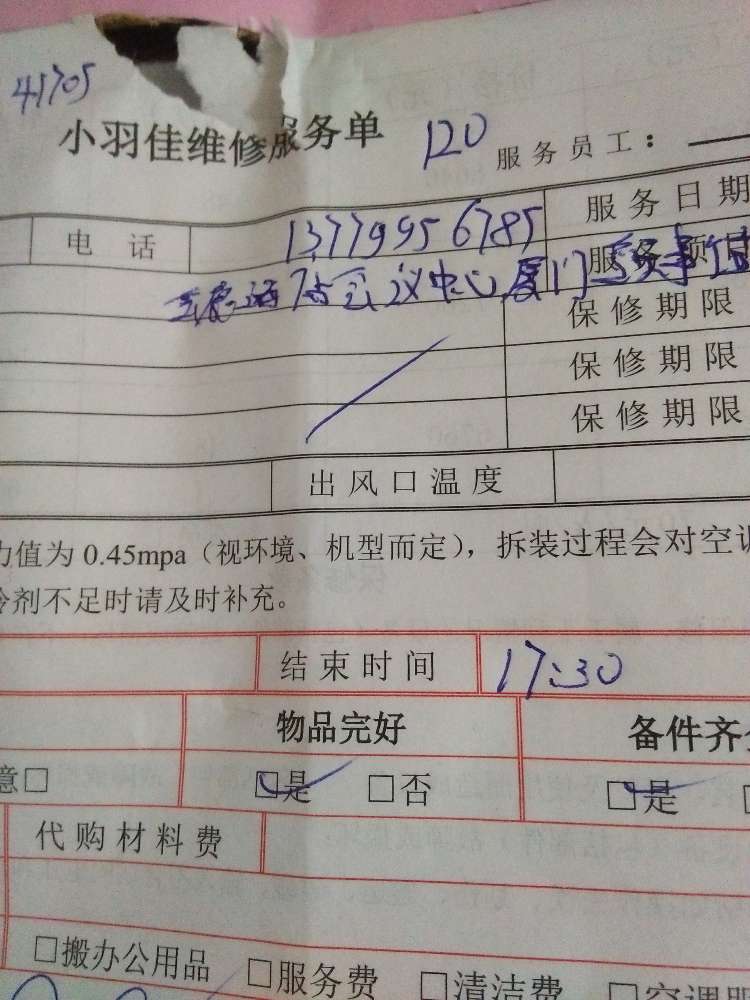 41705
小羽佳维修服务单 120 服务员工:
电话 13779956785 服务日期
店会议中心,厦门
保修期限
保修期限
保修期限
出风口温度
力值为 0.45mpa(视环境、机型而定),拆装过程会对空调
冷剂不足时请及时补充。
结束时间 17:30
物品完好 备件齐全
意□ □是 □否 □是
代购材料费
□搬办公用品 □服务费 □清洁费